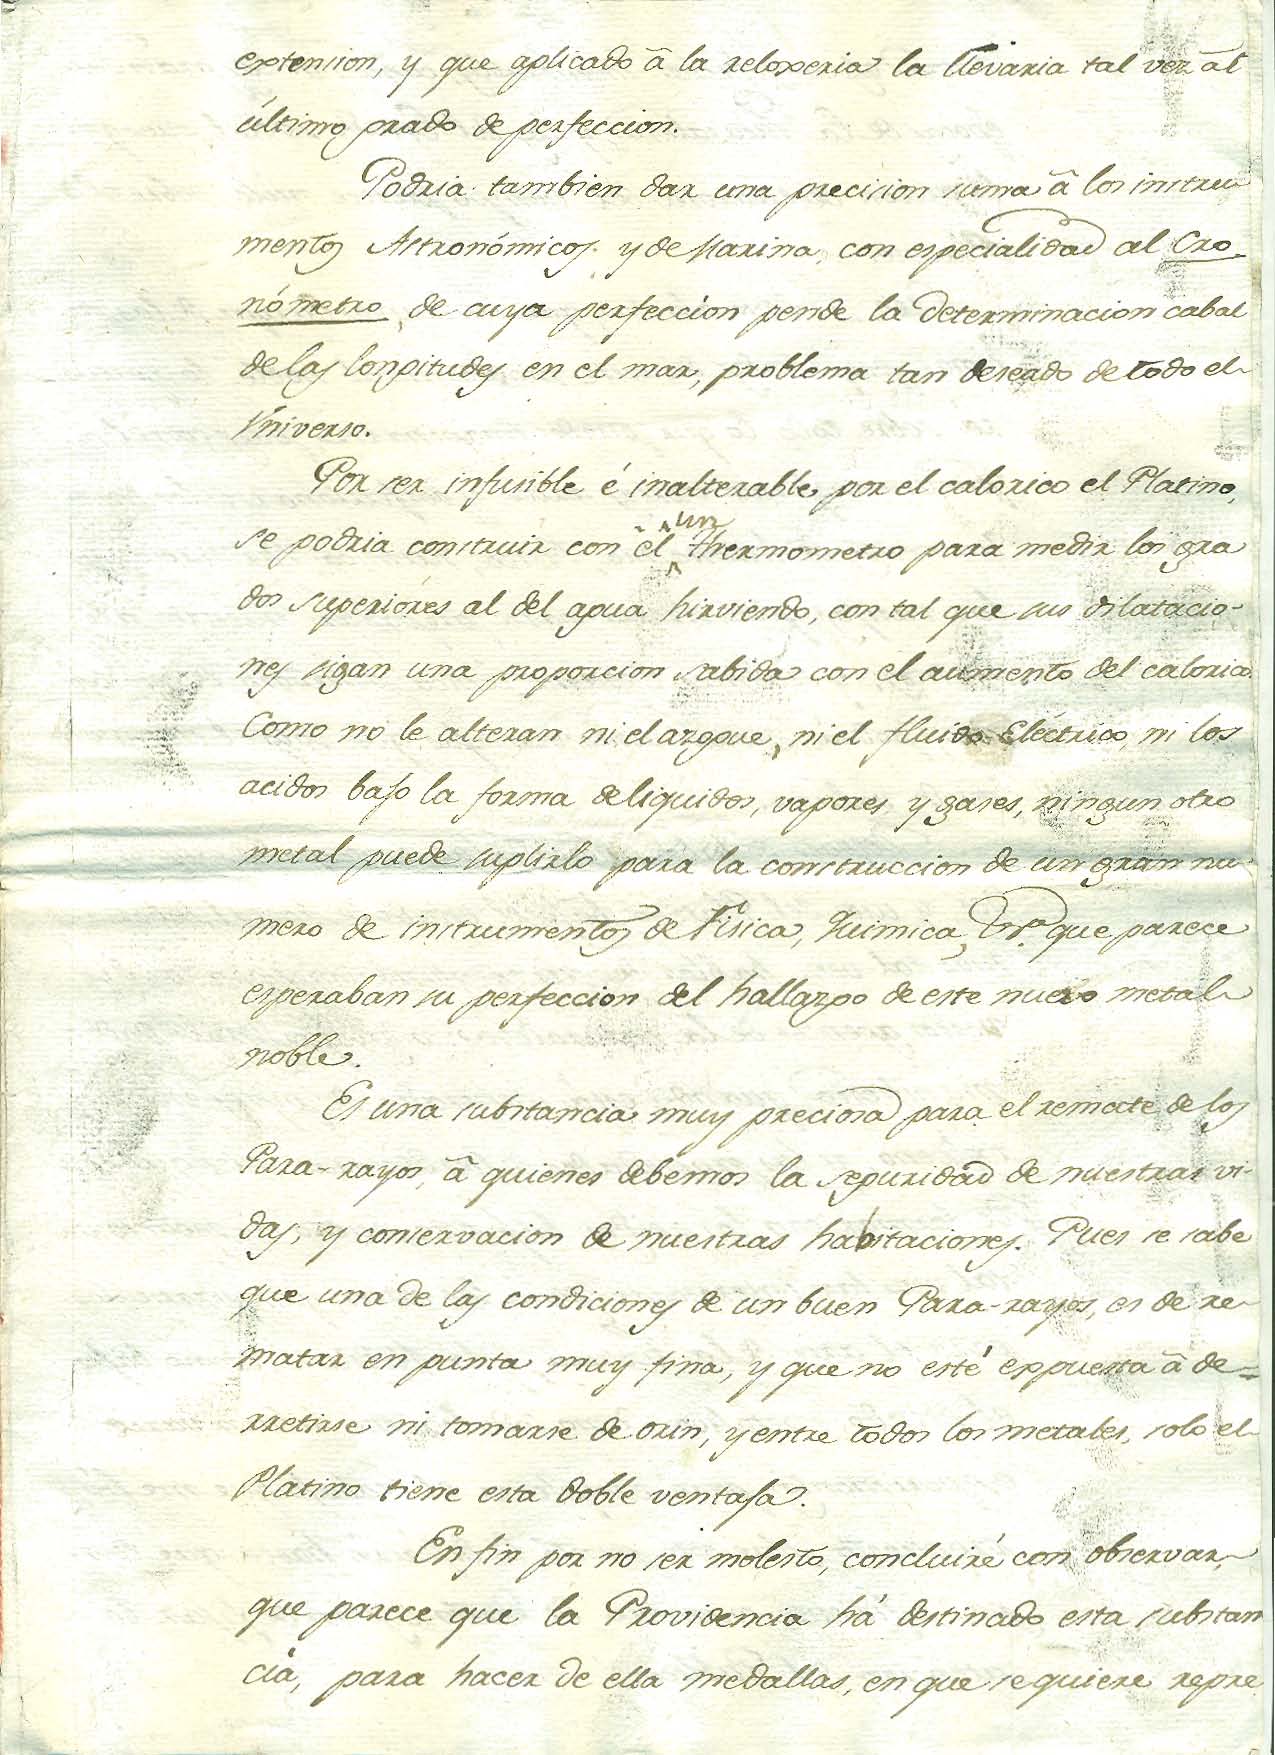 extension, y que aplicado â la reloxeria la llevaria tal vez âl
último grado de perfeccion.
Podria tambien dar una precision suma â los instru
mentos Astronómicos y de Marina, con especialidad al Cro-
nómetro, de cuya perfeccion pende la determinacion cabal
de las longitudes en el mar, problema tan deseado de todo el
Vniverso.
Por ser infusible é inalterable por el calorico el Platino,
se podria construir con êl un thermometro para medir los gra
dos superióres al del agua hirviendo, con tal que sus dilatacio-
nes sigan una proporcion sabida con el aumento del calorico.
Como no le alteran ni el azogue, ni el fluido Eléctrico, ni los
acidos bajo la forma de liquidos, vapores y gases, ningun otro
metal puede suplirlo para la construccion de un gran nu-
mero de instrumentos de Fisica, Quimica, &ª que parece
esperaban su perfeccion del hallazgo de este nuevo metal
noble.
Es una substancia muy preciosa para el remate de los
Para-rayos, â quienes debemos la seguridad de nuestras vi-
das, y conservacion de nuestras habitaciones. Pues se sabe
que una de las condiciones de un buen Para-rayos, es de re-
matar en punta muy fina, y que no esté expuesta â de=
rretirse ni tomarse de orin, y entre todos los metales, solo el
Platino tiene esta doble ventaja.
En fin por no ser molesto, concluiré con observar,
que parece que la Providencia há destinado esta substan
cia, para hacer de ella medallas, en que se quiere repre